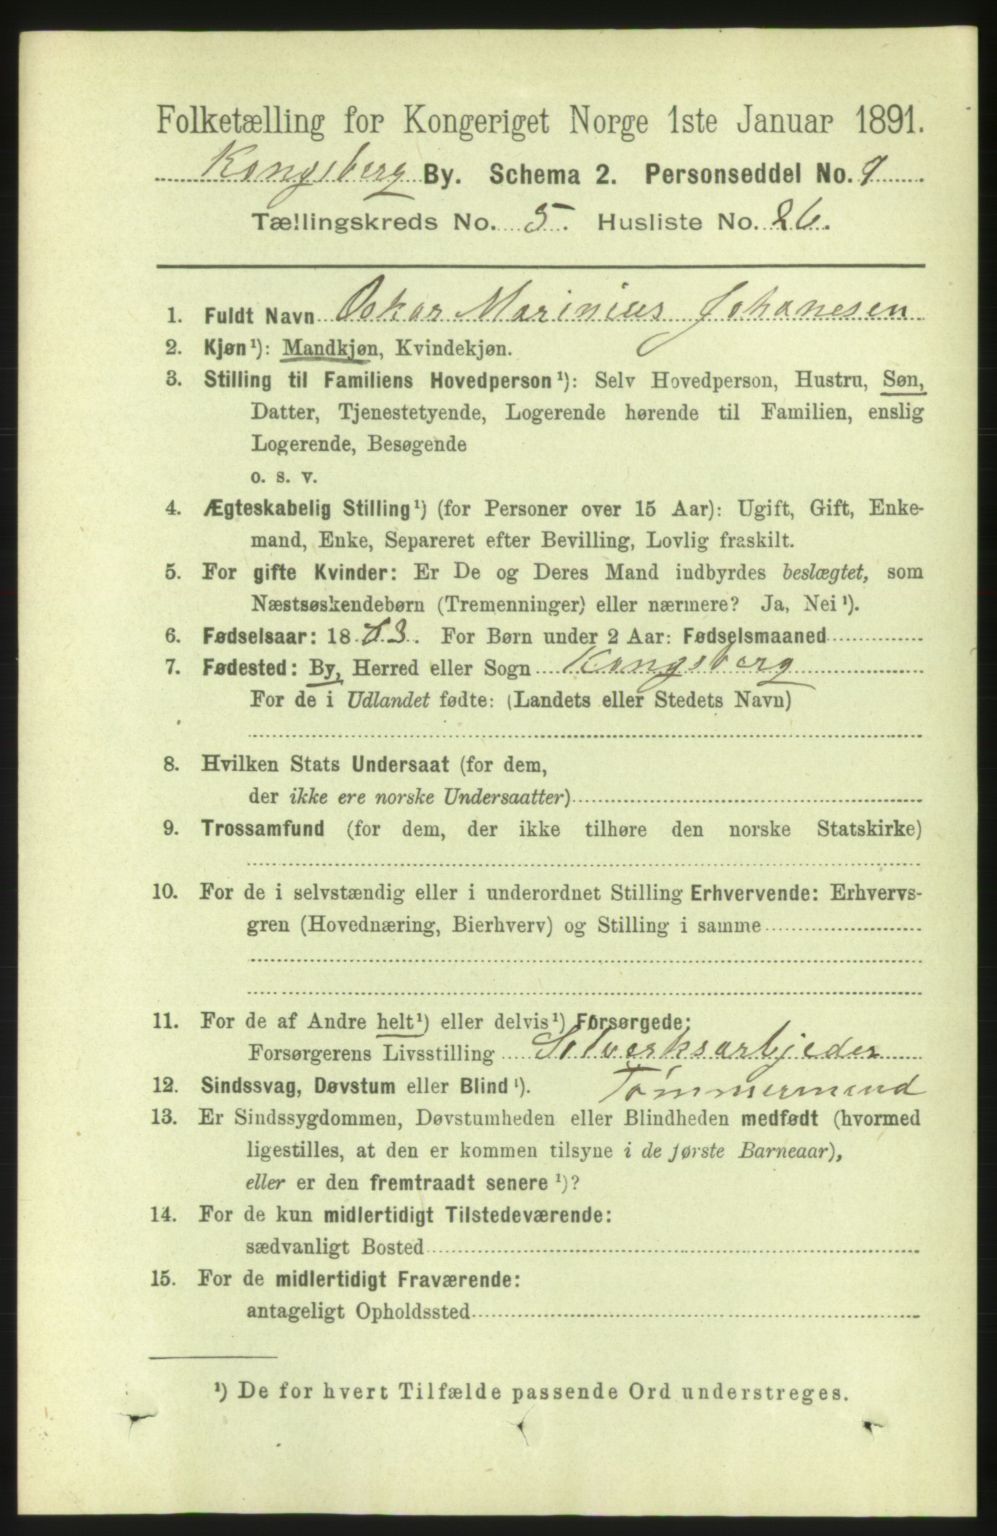 Folketælling for Kongeriget Norge 1ste Januar 1891.
Kongsberg By. Schema 2. Personseddel No. 9
Tællingskreds No. 5. Husliste No. 26.
1. Fuldt Navn Oskar Marinius Johanesen
2. Kjøn¹): Mandkjøn, Kvindekjøn.
3. Stilling til Familiens Hovedperson¹): Selv Hovedperson, Hustru, Søn,
Datter, Tjenestetyende, Logerende hørende til Familien, enslig
Logerende, Besøgende
o. s. v.
4. Ægteskabelig Stilling¹) (for Personer over 15 Aar): Ugift, Gift, Enke-
mand, Enke, Separeret efter Bevilling, Lovlig fraskilt.
5. For gifte Kvinder: Er De og Deres Mand indbyrdes beslægtet, som
Næstsøskendebørn (Tremenninger) eller nærmere? Ja, Nei¹).
6. Fødselsaar: 1883. For Børn under 2 Aar: Fødselsmaaned
7. Fødested: By, Herred eller Sogn Kongsberg
For de i Udlandet fødte: (Landets eller Stedets Navn)
8. Hvilken Stats Undersaat (for dem,
der ikke ere norske Undersaatter)
9. Trossamfund (for dem, der ikke tilhøre den norske Statskirke)
10. For de i selvstændig eller i underordnet Stilling Erhvervende: Erhvervs-
gren (Hovednæring, Bierhverv) og Stilling i samme
11. For de af Andre helt¹) eller delvis¹) Forsørgede:
Forsørgerens Livsstilling Sølverksarbjeder
12. Sindssvag, Døvstum eller Blind¹). Tømmermand
13. Er Sindssygdommen, Døvstumheden eller Blindheden medfødt (hvormed
ligestilles, at den er kommen tilsyne i de første Barneaar),
eller er den fremtraadt senere¹)?
14. For de kun midlertidigt Tilstedeværende:
sædvanligt Bosted
15. For de midlertidigt Fraværende:
antageligt Opholdssted
¹) De for hvert Tilfælde passende Ord understreges.